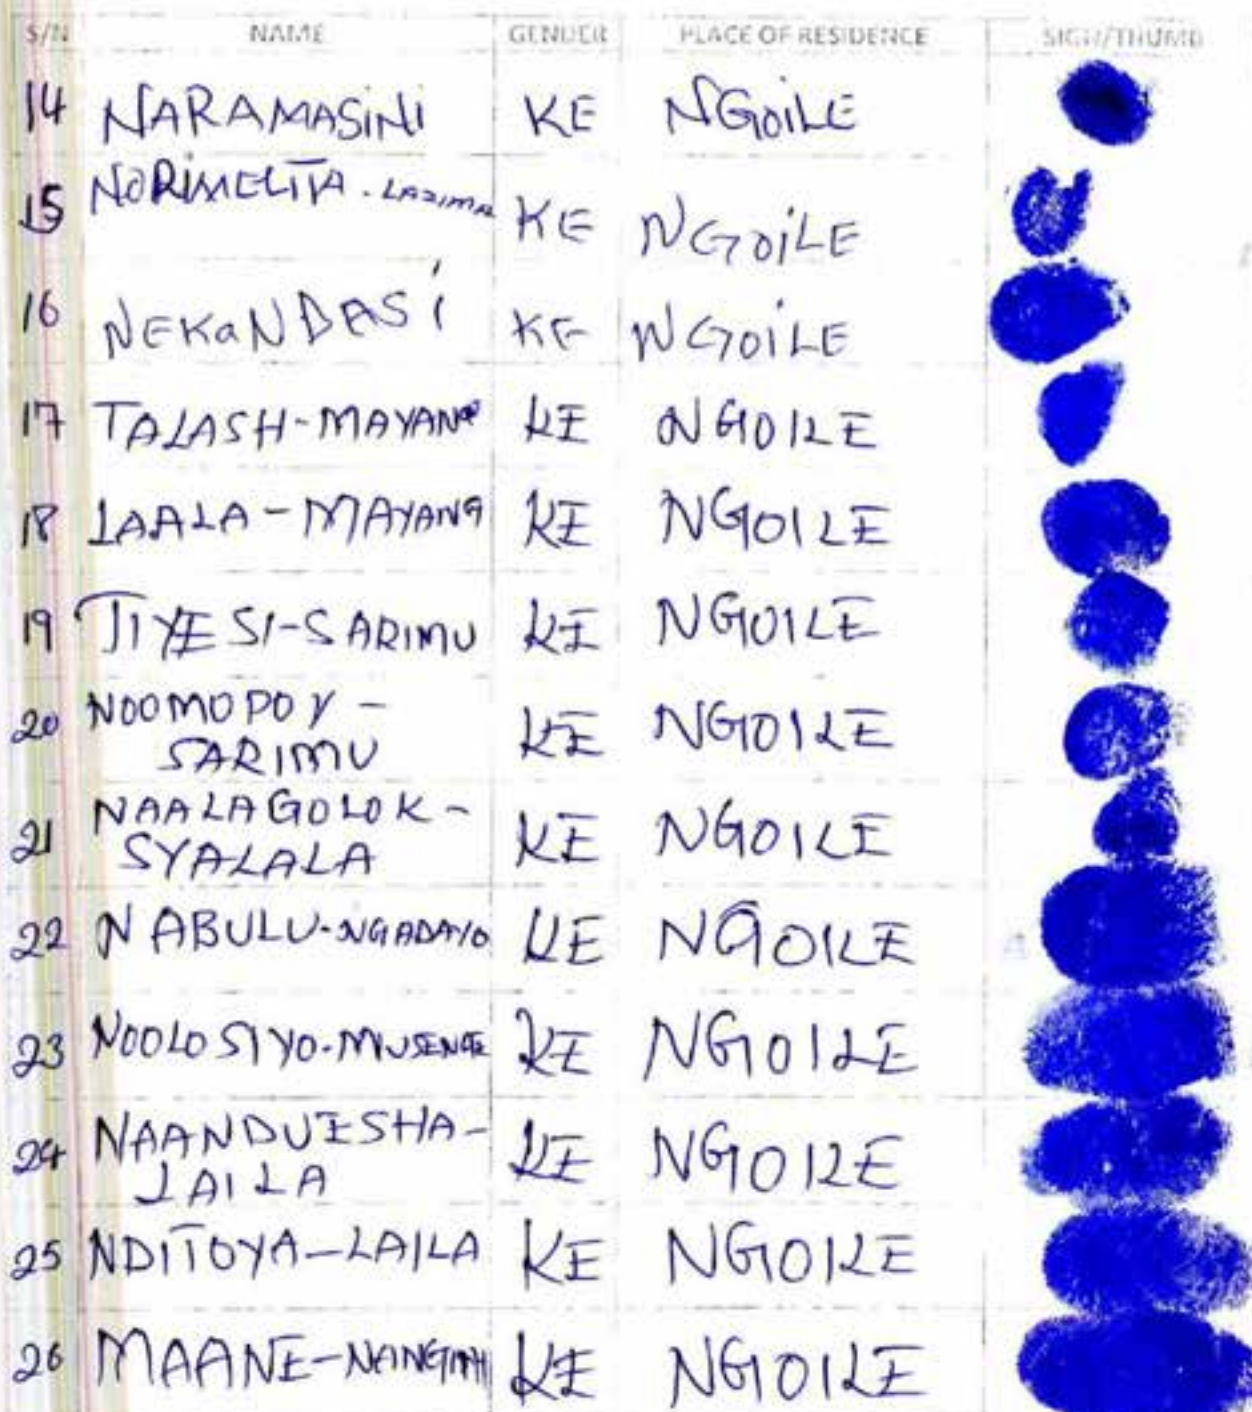 S/N NAME GENDER PLACE OF RESIDENCE SIGN/THUMB
14 NARAMASiNi KE NGOiLE
15 NORIMELITA . LAZIMA KE NGOiLE
16 NEKaNDASi KE NGOiLE
17 TALASH-MAYANG KE NGOILE
18 LAALA-MAYANG KE NGOILE
19 JIYESI-SARIMU KE NGOILE
20 NOOMOPOY-
SARIMU KE NGOILE
21 NAALAGOLOK-
SYALALA KE NGOILE
22 NABULU-NGADAYO KE NGOILE
23 NOOLOSIYO-MUSENGE KE NGOILE
24 NAANDUESHA-
LAILA KE NGOILE
25 NDITOYA-LAILA KE NGOILE
26 MAANE- KE NGOILE